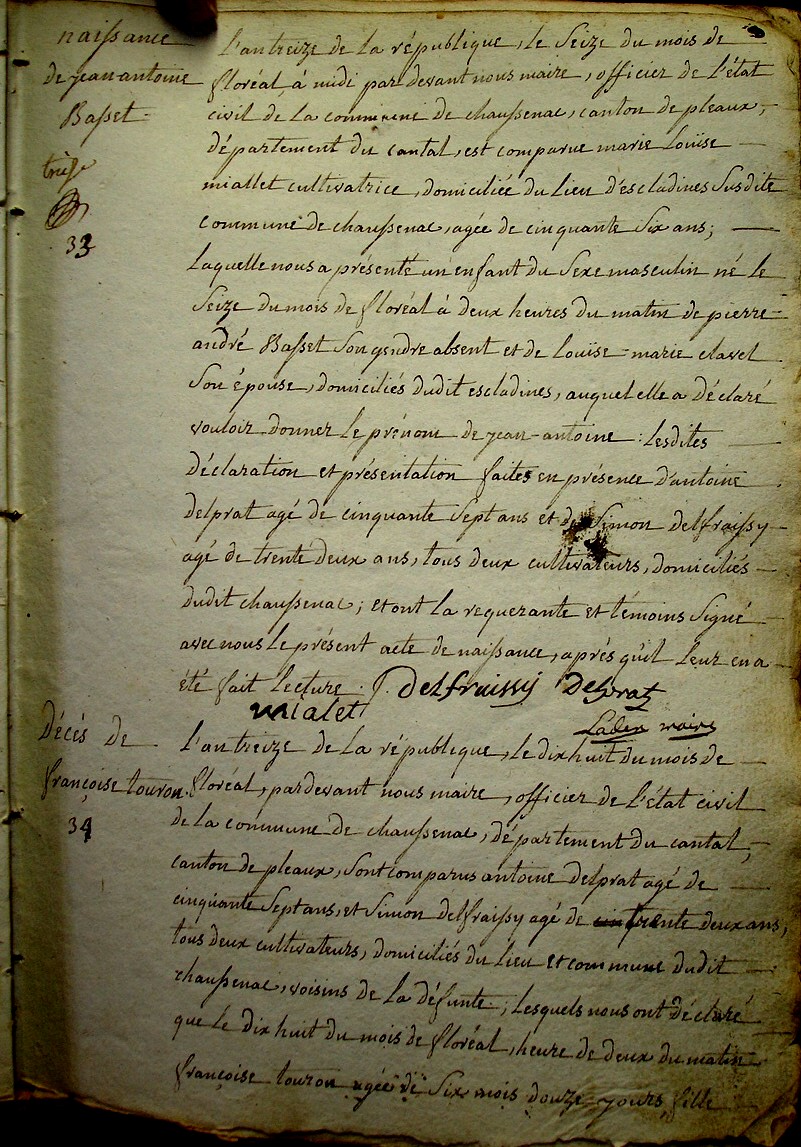 naissance
de jean-antoine
Basset
33
l'an treize de la république, le seize du mois de
floréal, à midi pardevant nous maire, officier de l'état
civil de la commune de chaussenac, canton de pleaux,
département du cantal, est comparue marie Louise
miallet cultivatrice, domiciliée du lieu d'escladines susdite
commune de chaussenac, agée de cinquante six ans;
laquelle nous a présenté un enfant du sexe masculin né le
seize du mois de floréal à deux heures du matin de pierre
andré Basset son gendre absent et de Louïse-marie clavel
son épouse, domiciliés dudit escladines, auquel elle a déclaré
vouloir donner le prénom de jean-antoine : lesdites
déclaration et présentation faites en présence d'antoine
delprat agé de cinquante sept ans et de Simon delfraissy
agé de trente deux ans, tous deux cultivateurs, domiciliés
dudit chaussenac; et ont la requerante et témoins signé
avec nous le présent acte de naissance, après qu'il leur en a
été fait lecture. Delfraissy Delprat
mialet
maire
Décès de
françoise touron.
34
l'an treize de la république, le dix huit du mois de
floréal, pardevant nous maire, officier de l'état civil
de la commune de chaussenac, département du cantal,
canton de pleaux, sont comparus antoine delprat agé de
cinquante sept ans, et Simon delfraissy agé de trente deux ans,
tous deux cultivateurs, domiciliés du lieu et commune dudit
chaussenac, voisins de la défunte; lesquels nous ont déclaré
que le dix huit du mois de floréal, heure de deux du matin
françoise touron agée de six mois douze jours, fille